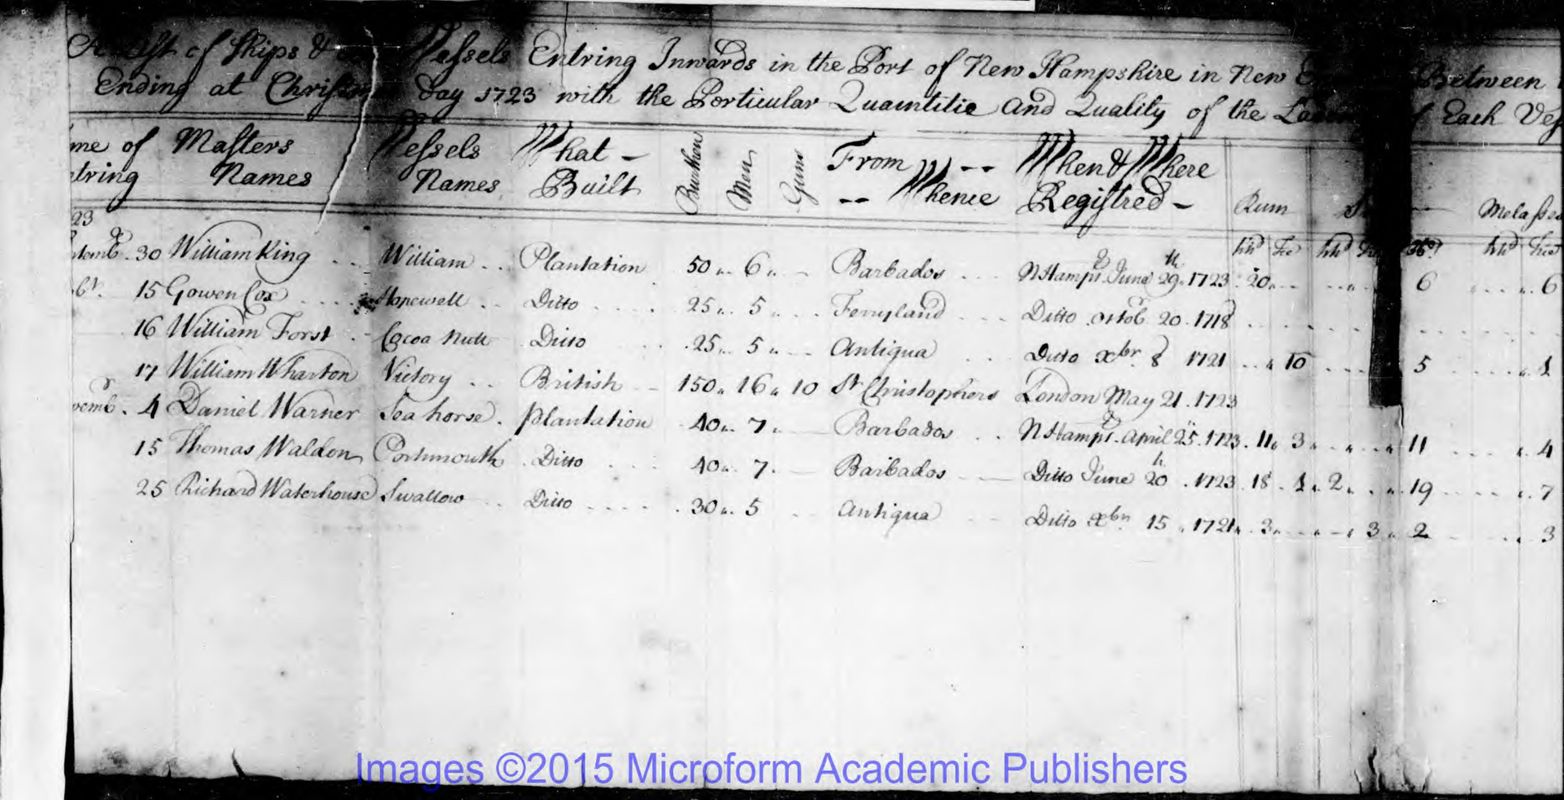 A List of Ships & Vessels Entring Inwards in the Port of New Hampshire in New Between
Ending at Christmas day 1723 with the Perticular Quantitie and Quality of the of Each Ves
me of Masters Vessels What - Burthen Men Guns From -- When & Where
ntring Names Names Built -- Whence Registred - Rum Melasses
23 hhd Tce hhd hhd Tce
temb. 30 William King . . William . . Plantation 50 6 Barbados N Hampr June 29th 1723 20 6 6
15 Gowen Cox Hopewell Ditto 25 5 Ferryland Ditto octob 20 1718
16 William Forst Cocoa Nutt Ditto 25 5 Antigua Ditto xbr 8 1721 10 5 1
17 William Wharton Victory British 150 16 10 St Christophers London May 21 . 1723
vemb. 4 Daniel Warner Sea horse . plantation 40 7 Barbados N Hampr April 25 . 1723 . 11 3 11 4
15 Thomas Waldon Portsmouth Ditto 40 7 Barbados Ditto June 20 . 1723 . 18 1 2 19 7
25 Richard Waterhouse Swallow Ditto 30 5 Antigua Ditto xbr 15 1721 3 3 2 3
Images ©2015 Microform Academic Publishers